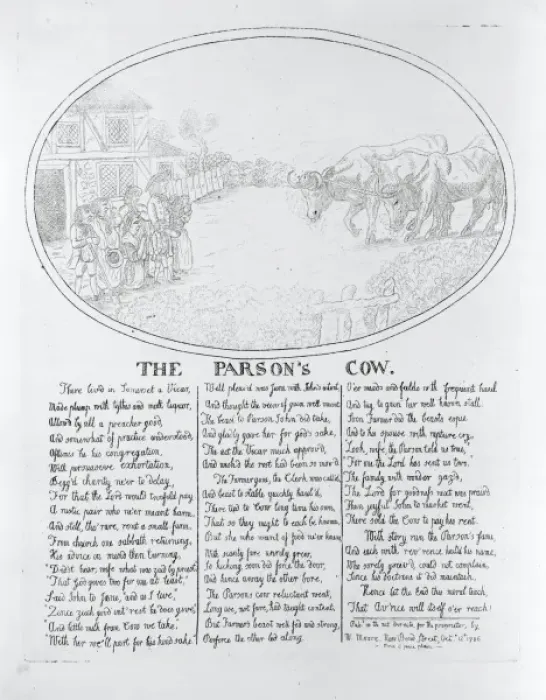 THE PARSON's COW.
There liv'd in Somerset a Vicar,
Made plump with tythes and malt liquor,
Allow'd by all a preacher good,
And somewhat of practice understood,
Oftimes he his congregation,
With persuasive exhortation,
Begg'd charity ne'er to delay,
For that the Lord would twofold pay
A rustic pair who ne'er meant harm,
And still, tho' rare, rent a small farm,
From church one sabbath returning,
His advice on mind then turning,
"Didst hear, wife what was said by priest
"That God gives two for one at least,"
Said John to Jane, "and as I live,"
"Since such good int'rest he does give"
"And little milk from Cow we take,"
"With her we'll part for his kind sake"
Well pleas'd was Jane with John's intent
And thought the vicar if pain well meant
The beast to Parson John did take,
And gladly gave her for god's sake,
The act the Vicar much approv'd,
And wish'd the rest had been so mov'd
The Farmer gone, the Clerk was call'd,
And beast to stable quickly haul'd,
There tied to Cow long time his own,
That so they might to each be known,
But she who want of food ne'er knew
With manly fare unruly grew,
So kicking soon did force the door,
And hence away the other bore,
The Parsons cow reluctant went,
Long use, not fare, had taught content,
But Farmer's beast well fed and strong,
Perforce the other led along.
O'er roads and fields with frequent haul
And lug to gain her well known stall.
Soon Farmer did the beasts espie
And to his spouse with rapture cry,
"Look, wife, the Parson told us true,
"For one the Lord has sent us two.
The family with wonder gaz'd,
The Lord for goodness next was prais'd
Then joyful John to market went,
There sold the Cow to pay his rent.
With story run the Parson's fame,
And each with rev'rence hail'd his name,
Who sorely griev'd, could not complain,
Since his doctrines it did maintain.
Hence let the End this moral teach,
That Av'rice will itself o'er reach!
Pub'd as the act directs, for the proprietor, by
W. Moore, New Bond Street, Oct. 1786